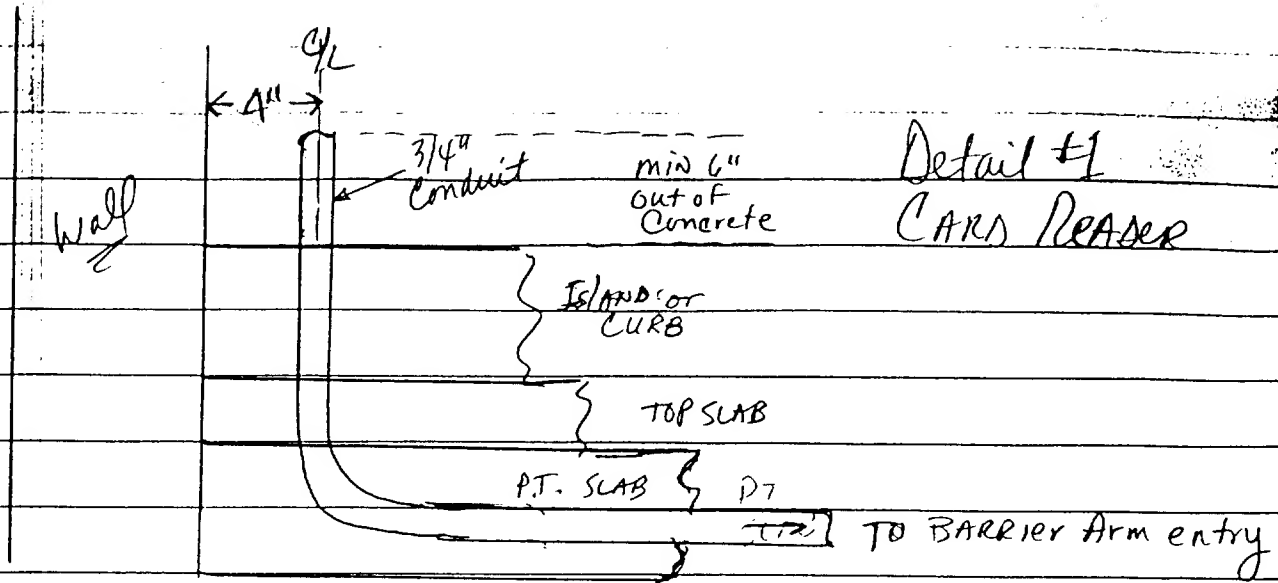 C/L
4"
3/4"
Conduit
min 6"
out of
Concrete
Detail #1
CARD READER
Wall
ISLAND or
CURB
TOP SLAB
P.T. SLAB
D7
TO BARRIER Arm entry